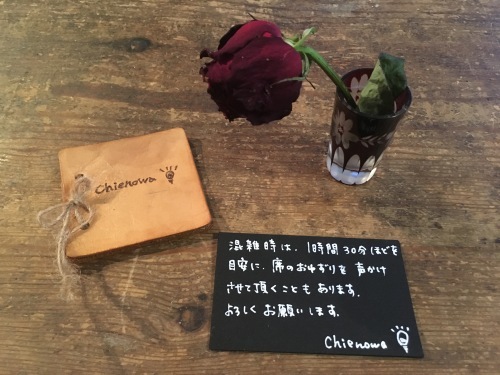 Chienowa
混雑時は、1時間30分ほどを
目安に、席のおゆずりを声かけ
させて頂くこともあります。
よろしくお願いします。
Chienowa